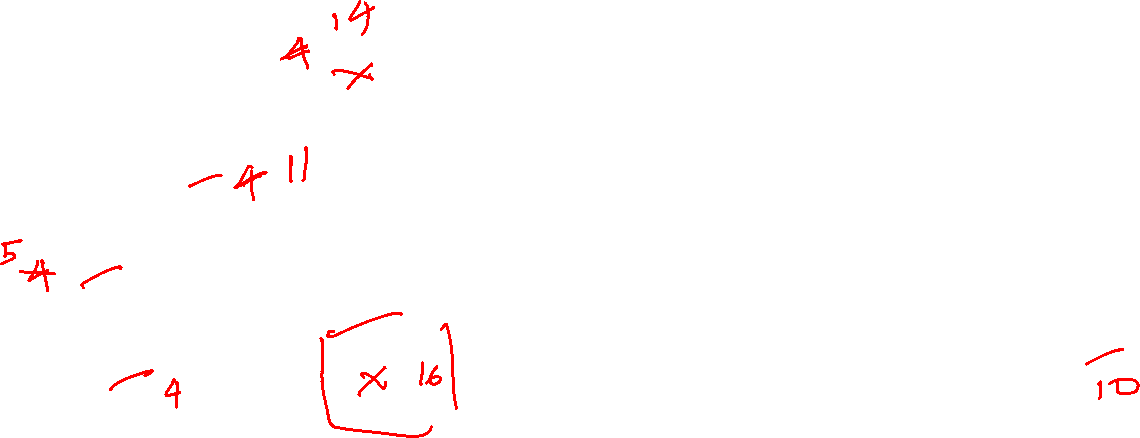 14
4 x
- 4 11
5
4 -
- 4 x 16
10